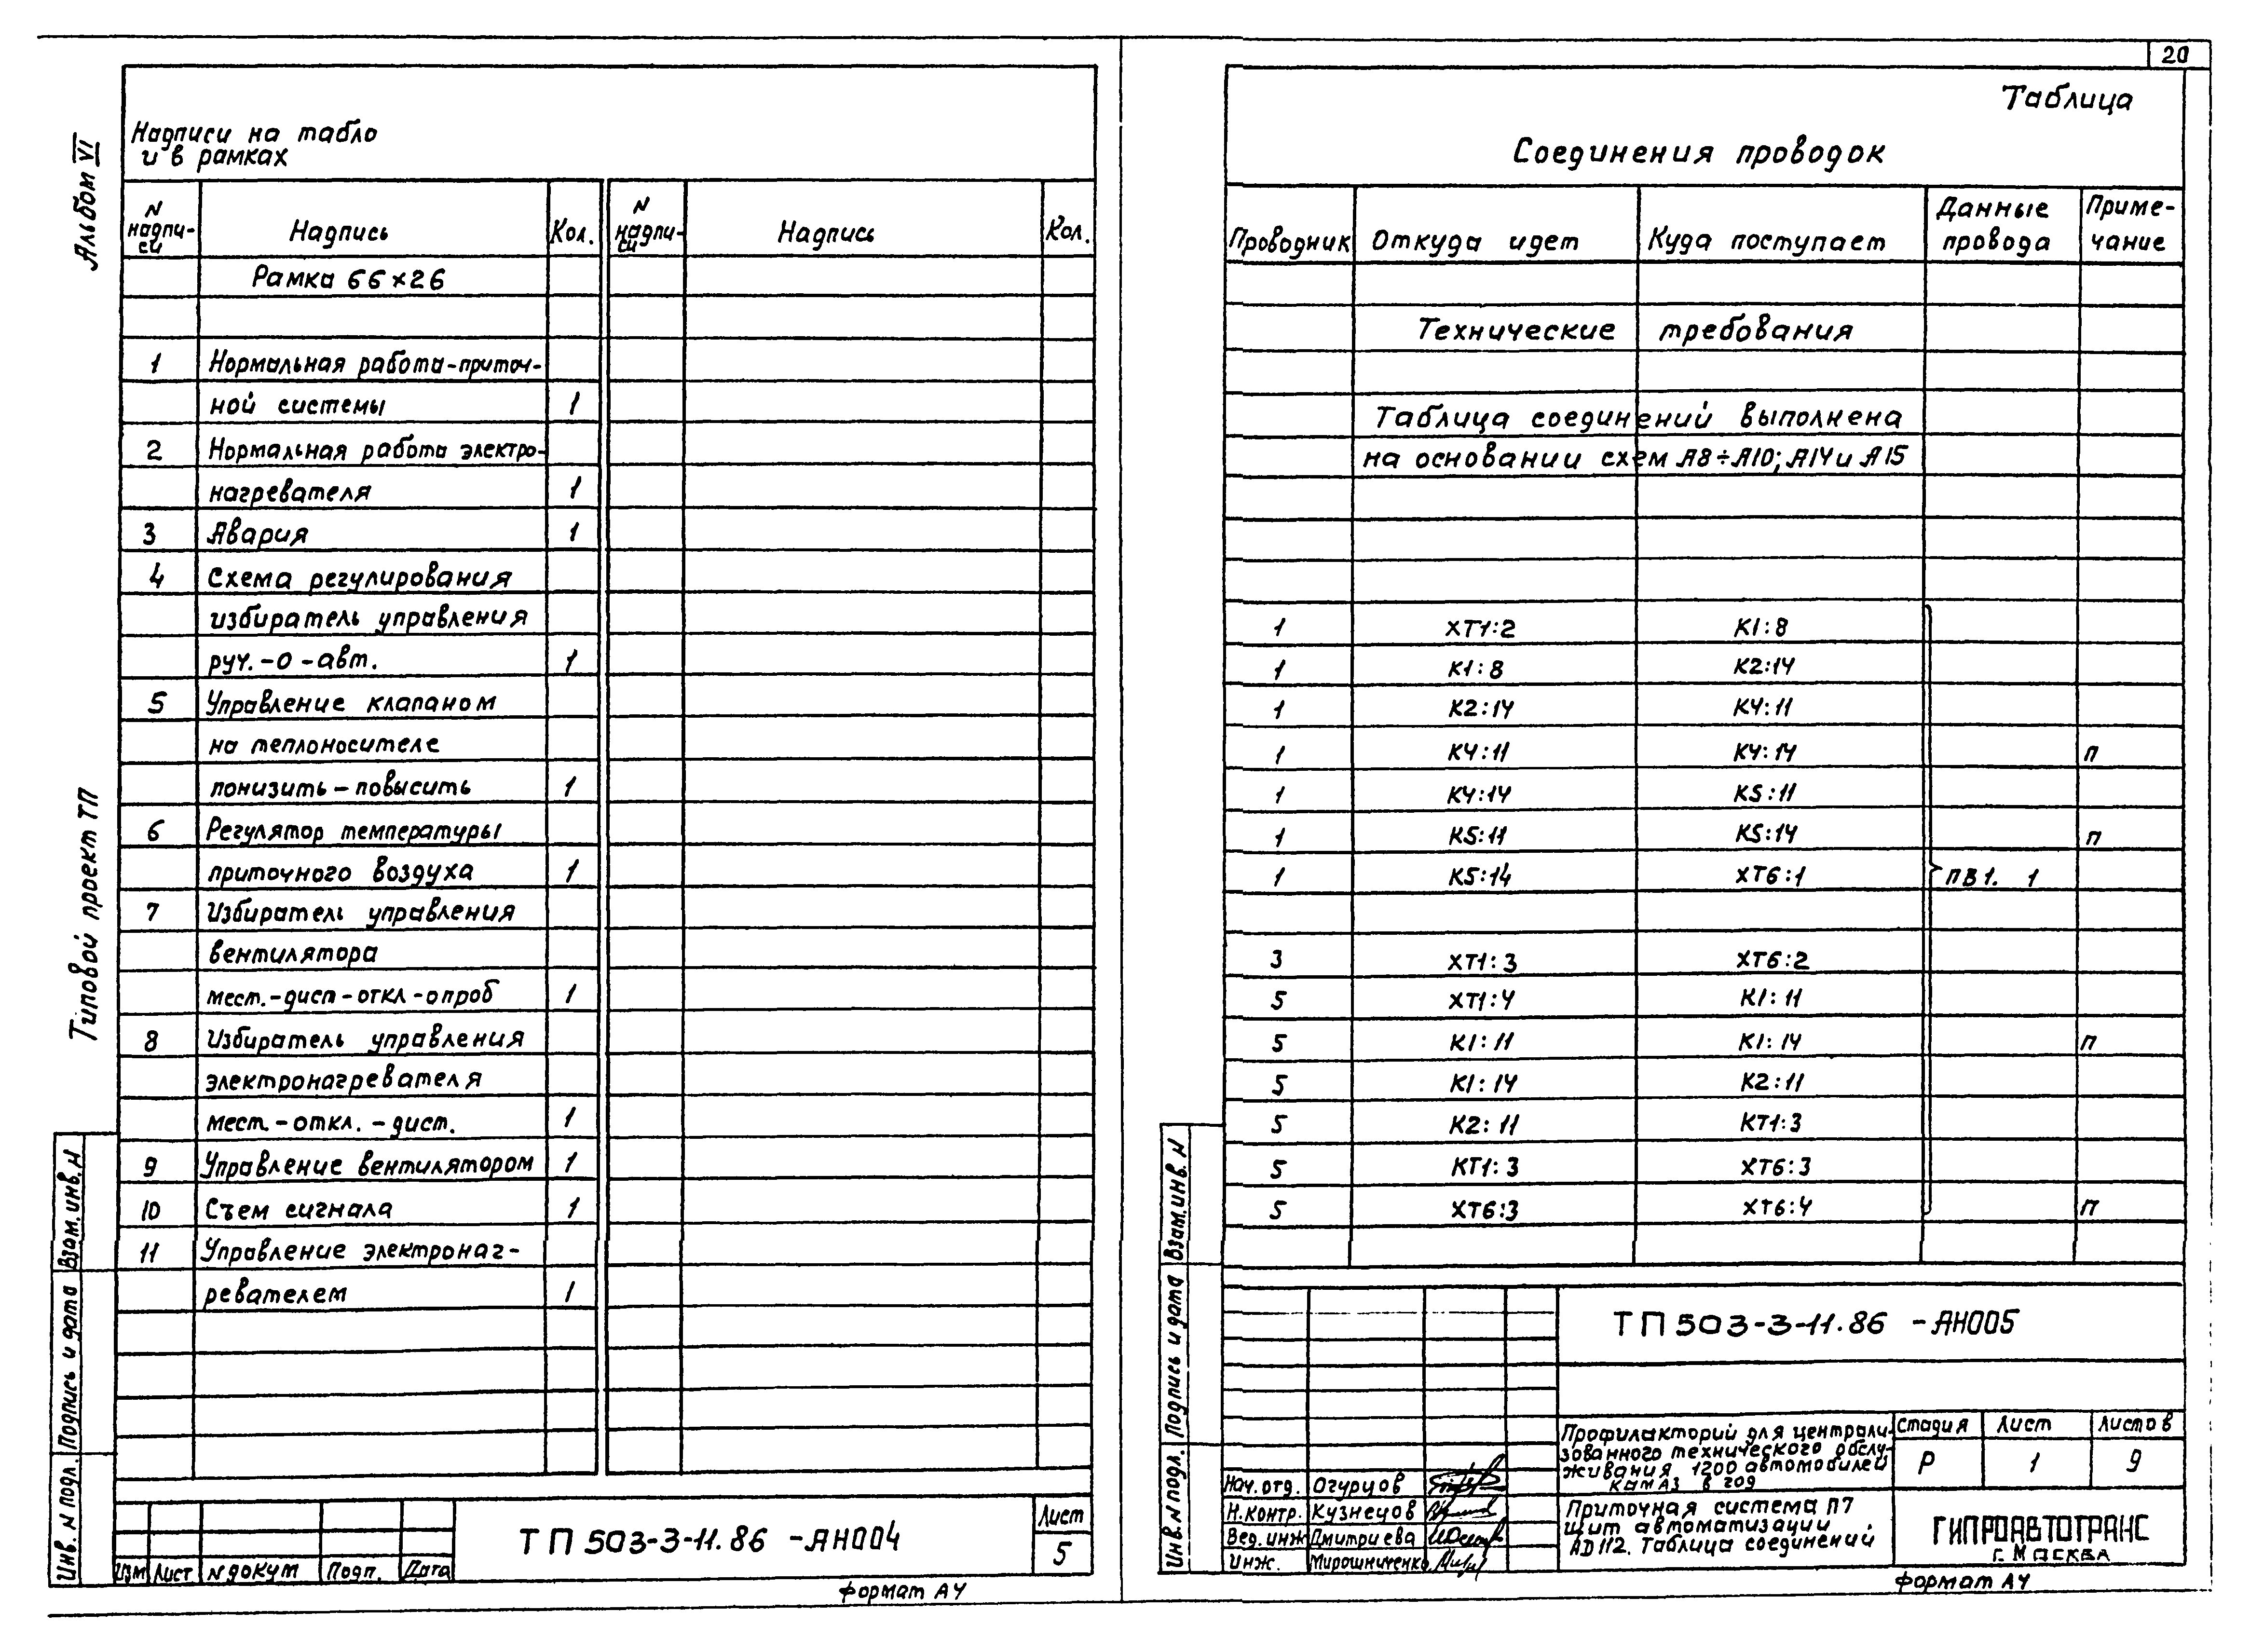 20
Альбом VI
Типовой проект ТП
Надписи на табло
и в рамках
N надпи-си Надпись Кол. N надпи-си Надпись Кол.
Рамка 66×26
1 Нормальная работа-приточ-
ной системы 1
2 Нормальная работа электро-
нагревателя 1
3 Авария 1
4 Схема регулирования
избиратель управления
руч.-о-авт. 1
5 Управление клапаном
на теплоносителе
понизить-повысить 1
6 Регулятор температуры
приточного воздуха 1
7 Избиратель управления
вентилятора
мест.-дист-откл-опроб 1
8 Избиратель управления
электронагревателя
мест.-откл.-дист. 1
9 Управление вентилятором 1
10 Съем сигнала 1
11 Управление электронаг-
ревателем 1
Инв. N подл. Подпись и дата Взам. инв. N
Изм Лист N докум Подп. Дата
ТП 503-3-11.86 -АН004
Лист
5
Формат А4
Таблица
Соединения проводок
Проводник Откуда идет Куда поступает Данные провода Приме-чание
Технические требования
Таблица соединений выполнена
на основании схем А8÷А10; А14 и А15
1 ХТ1:2 К1:8
1 К1:8 К2:14
1 К2:14 К4:11
1 К4:11 К4:14 П
1 К4:14 К5:11
1 К5:11 К5:14 П
1 К5:14 ХТ6:1 ПВ1. 1
3 ХТ1:3 ХТ6:2
5 ХТ1:4 К1:11
5 К1:11 К1:14 П
5 К1:14 К2:11
5 К2:11 КТ1:3
5 КТ1:3 ХТ6:3
5 ХТ6:3 ХТ6:4 П
Инв. N подл. Подпись и дата Взам. инв. N
ТП 503-3-11.86 -АН005
Профилакторий для централи-
зованного технического обслу-
живания 1200 автомобилей
КамАЗ в год
Стадия Лист Листов
Р 1 9
Нач. отд. Огурцов
Н. контр. Кузнецов
Вед. инж Дмитриева
Инж. Мирошниченко
Приточная система П7
Щит автоматизации
АD112. Таблица соединений
ГИПРОАВТОТРАНС
г. Москва
Формат А4